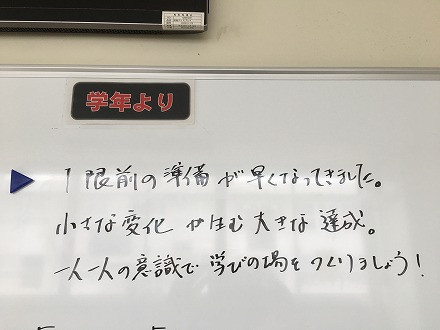 学年より
1限前の準備が早くなってきました。
小さな変化が生む大きな達成。
一人一人の意識で学びの場をつくりましょう!